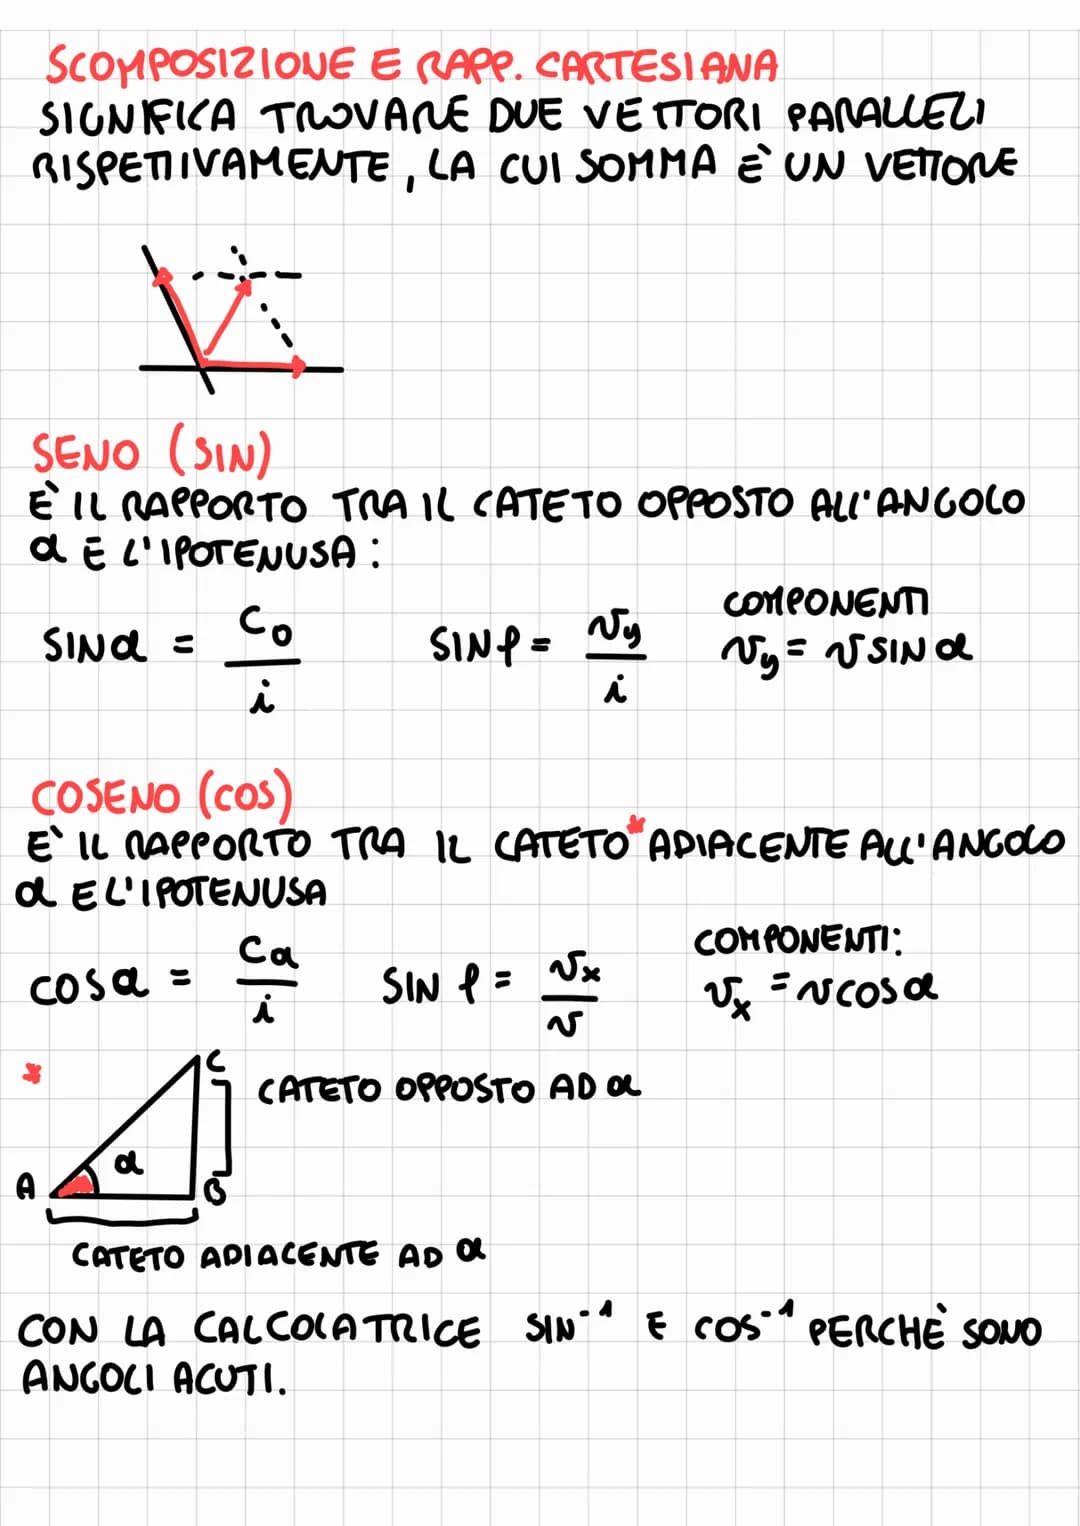 SCOMPOSIZIONE E RAPP. CARTESIANA
SIGNIFICA TROVARE DUE VETTORI PARALLELI
RISPETIVAMENTE, LA CUI SOMMA È UN VETTORE
SENO (SIN)
È IL RAPPORTO TRA IL CATETO OPPOSTO ALL'ANGOLO
α E L'IPOTENUSA:
SINα = Co / i
SINρ = vy / i
COMPONENTI
vy = v SIN α
COSENO (COS)
E` IL RAPPORTO TRA IL CATETO* ADIACENTE ALL'ANGOLO
α E L'IPOTENUSA
COSα = Ca / i
SIN ρ = vx / v
COMPONENTI:
vx = v COS α
*
C
CATETO OPPOSTO AD α
α
A
B
CATETO ADIACENTE AD α
CON LA CALCOLATRICE SIN⁻¹ E COS⁻¹ PERCHÈ SONO
ANGOLI ACUTI.